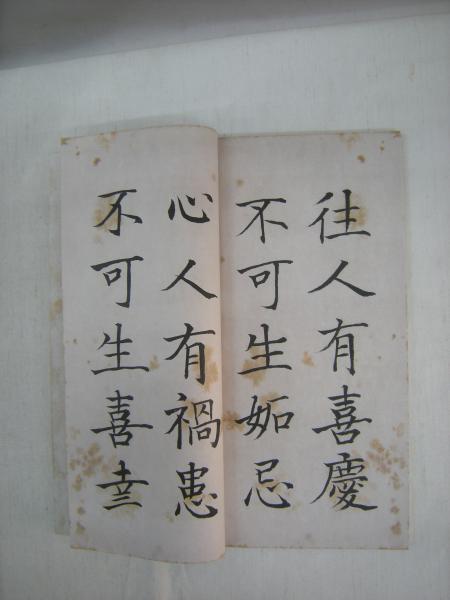 往人有喜慶
不可生妬忌
心人有禍患
不可生喜幸